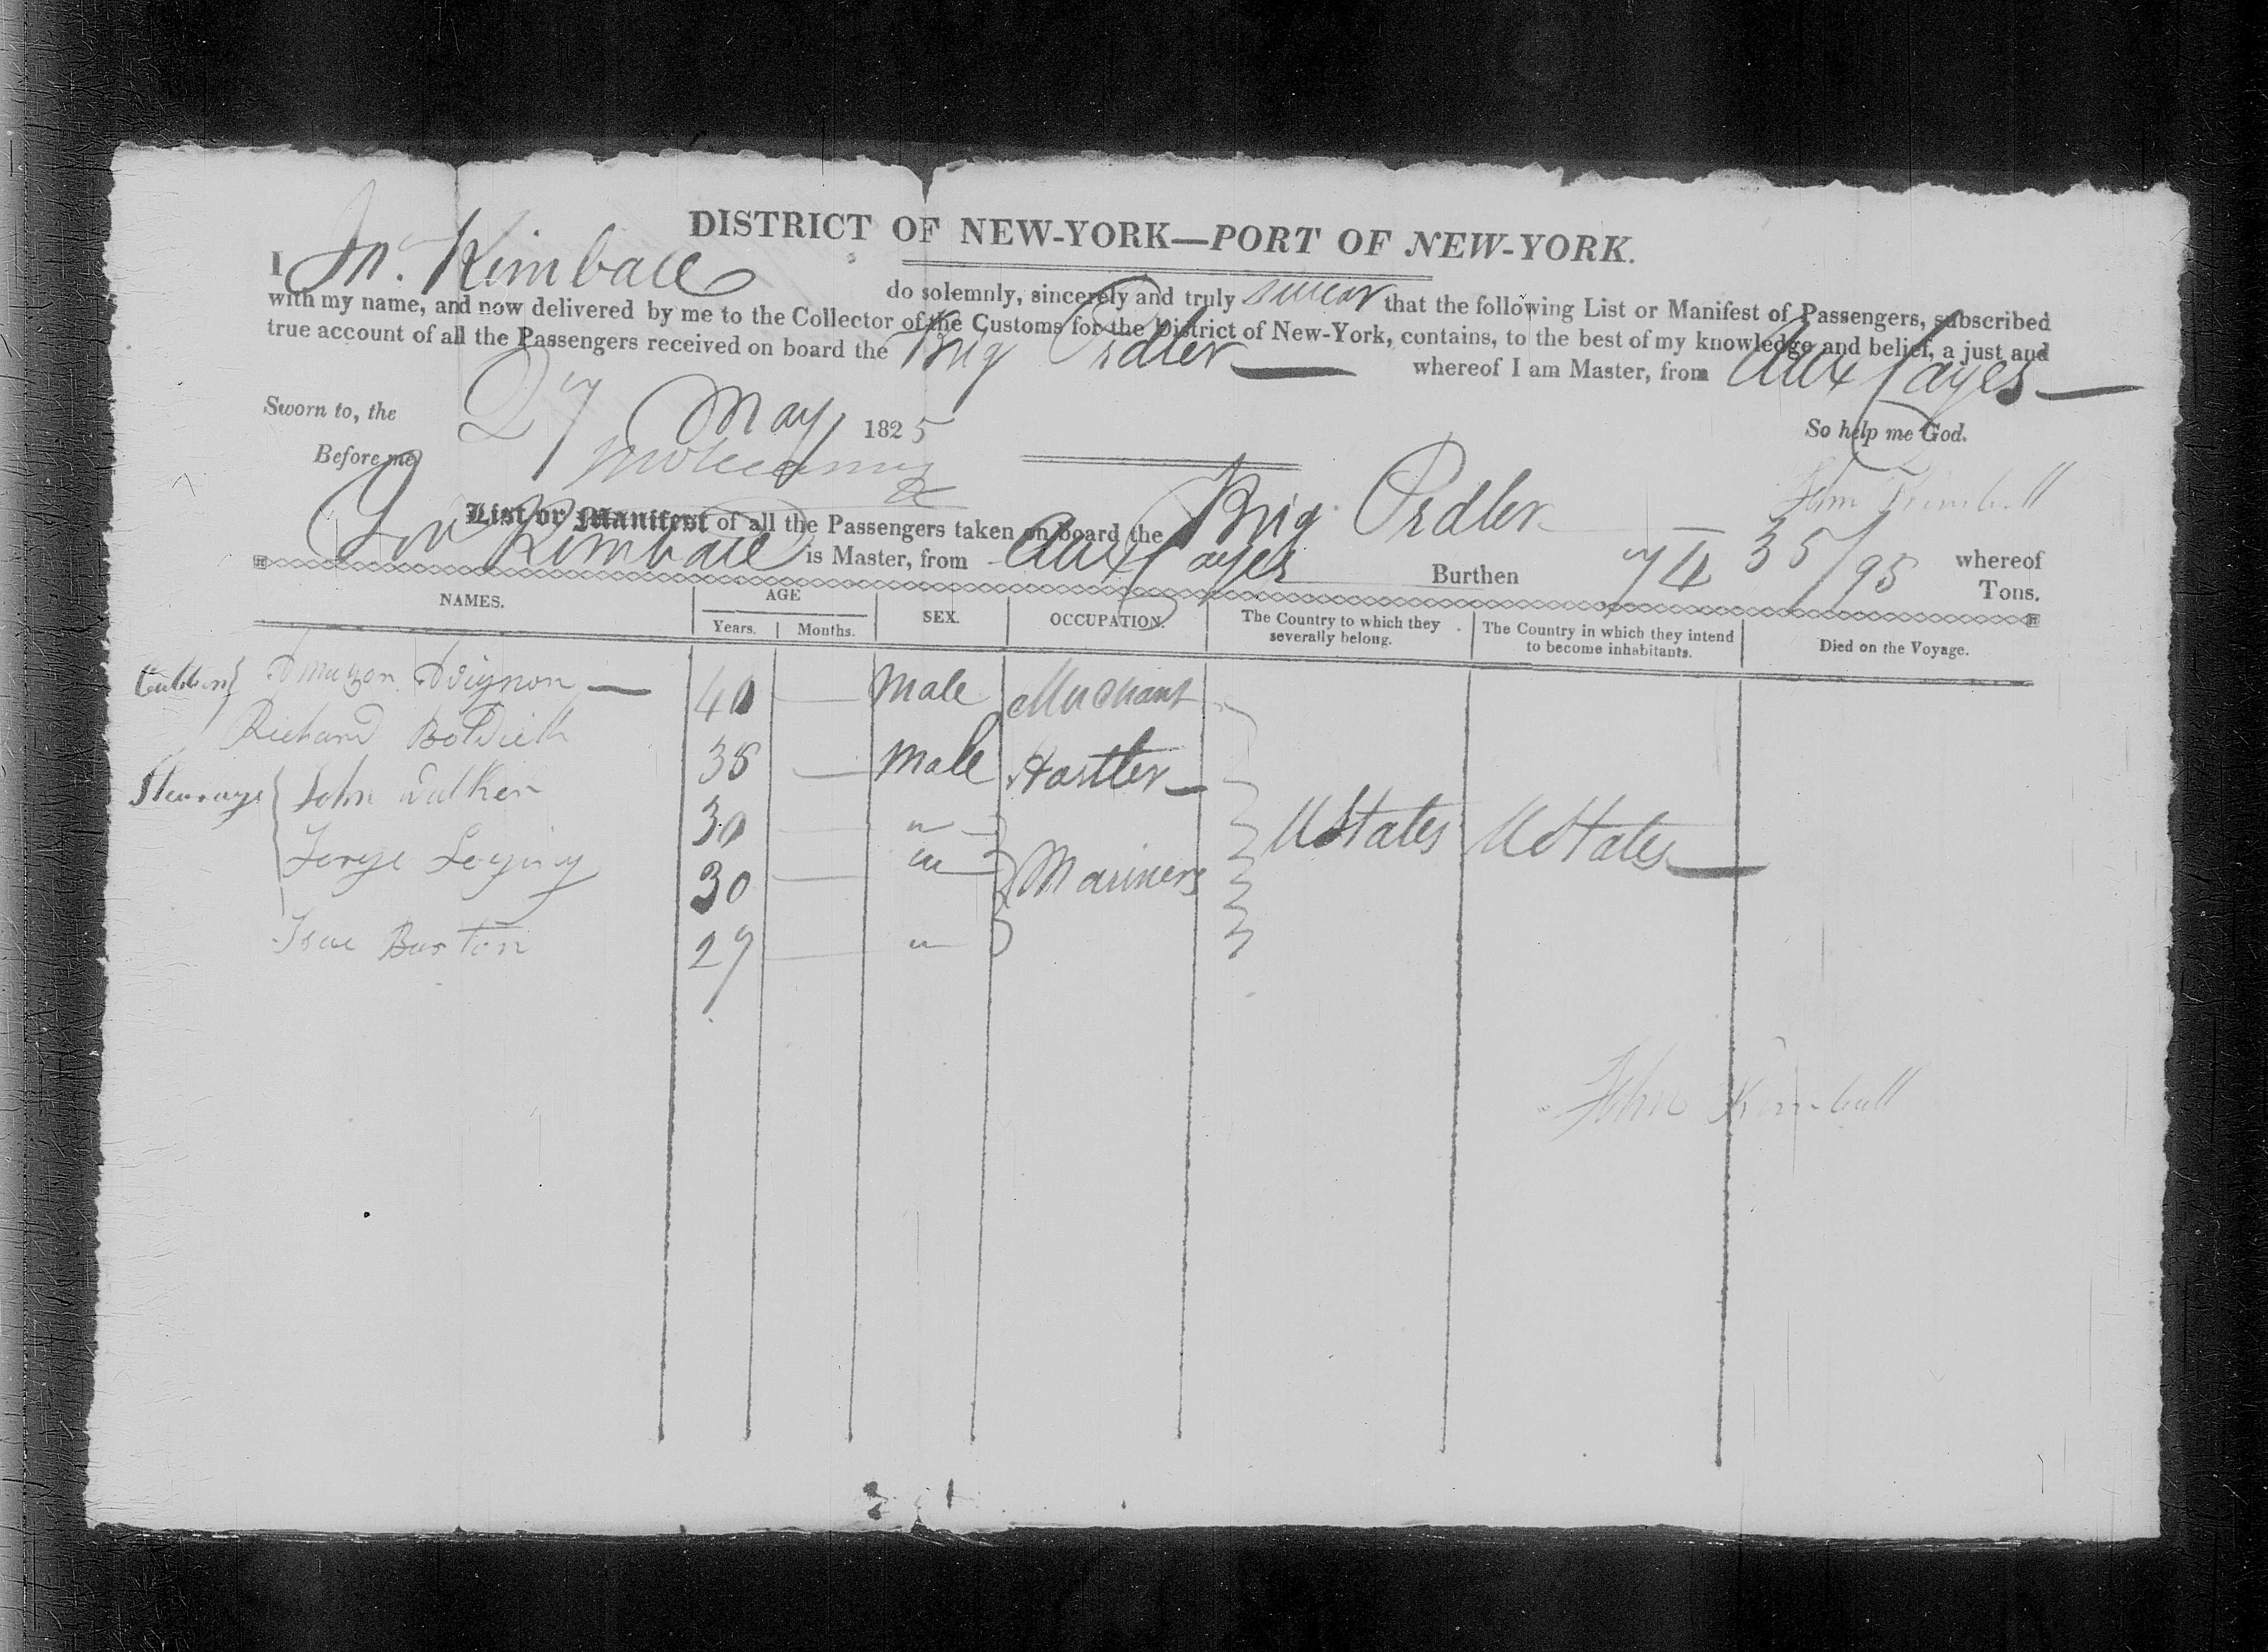 DISTRICT OF NEW-YORK—PORT OF NEW-YORK.
I Jn. Kimball do solemnly, sincerely and truly swear that the following List or Manifest of Passengers, subscribed
with my name, and now delivered by me to the Collector of the Customs for the District of New-York, contains, to the best of my knowledge and belief, a just and
true account of all the Passengers received on board the Brig Pedler whereof I am Master, from Aux Cayes
Sworn to, the 27 May 1825 So help me God.
Before me
John Kimball
List or Manifest of all the Passengers taken on board the Brig Pedler whereof
Jn Kimball is Master, from Aux Cayes Burthen 74 35/95 Tons.
NAMES. AGE SEX. OCCUPATION. The Country to which they severally belong. The Country in which they intend to become inhabitants. Died on the Voyage.
Years. Months.
40 Male Merchant
Richard 38 Male Hostler
Steerage John Walker 30 "
30 " Mariners U States U States
Isac Burton 29 "
John Kimball